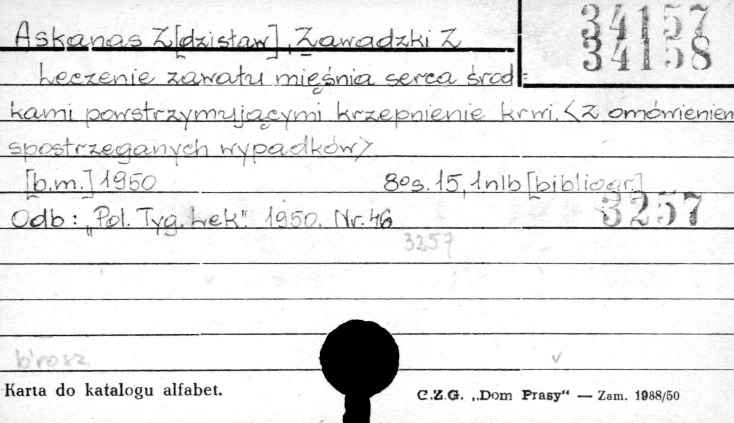 34157
34158
Askanas Z[dzisław], Zawadzki Z
Leczenie zawału mięśnia serca środ=
kami powstrzymującymi krzepnienie krwi. <Z omówieniem
spostrzeganych wypadków>
[b.m.] 1950 8os. 15, 1nlb [bibliogr.]
Odb: „Pol. Tyg. Lek". 1950. Nr. 46 3257
3257
brosz. v
Karta do katalogu alfabet. C.Z.G. „Dom Prasy“ — Zam. 1988/50